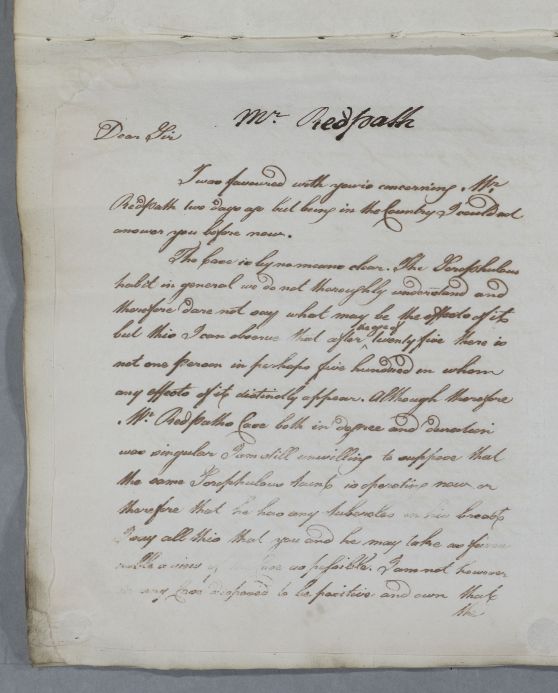 Mr Redpath
Dear Sir
I was favoured with yours concerning Mr
Redpath two days ago but being in the Country I could not
answer you before now.
The Case is by no means clear. The Scrophulous
habit in general we do not thoroughly understand and
therefore dare not say what may be the effects of it
but this I can observe that after aged twenty five there is
not one person in perhaps five hundred in whom
any effects of it distinctly appear. Although therefore
Mr Redpaths Case both in degree and duration
was singular I am still unwilling to suppose that
the same Scrophulous taint is operating now or
therefore that he has any tubercles in his breast
I say all this that you and he may take as favou
rable a view of the Case as possible. I am not however
in any Case disposed to be positive and own that
the